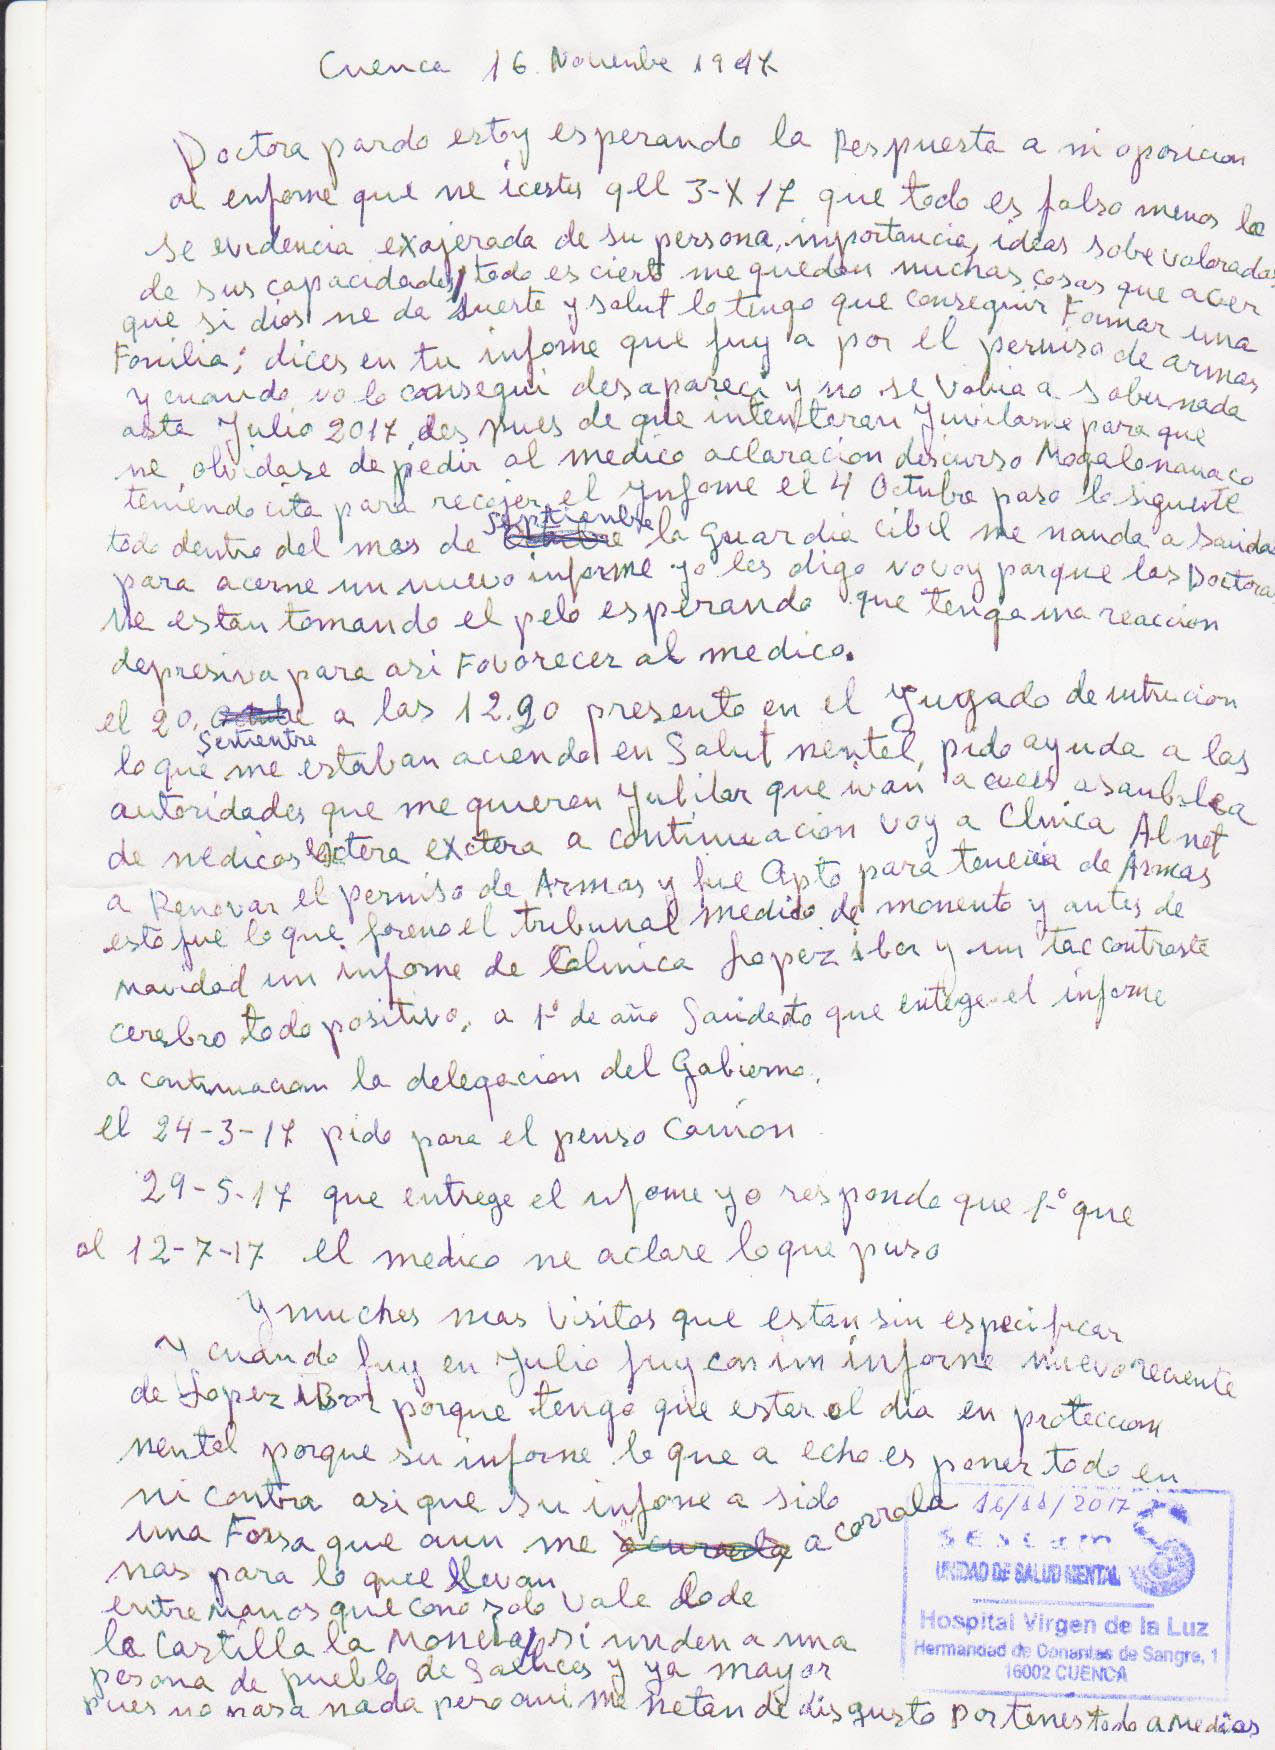 Cuenca 16 Novienbre 1917
Doctora pardo estoy esperando la Respuesta a mi oposicion
al enfome que me icestes qell 3-X 17 que todo es falso menos la
se evidencia exajerada de su persona, inportancia, ideas sobe valoradas
de sus capacidades, todo es cierto me quedan muchas cosas que acer
que si dios me da suerte y salut lo tengo que conseguir Formar una
Familia; dices en tu informe que fuy a por el permiso de armas
y cuando no lo consegui desapareci y no se volvia a saber nada
asta Julio 2017, des pues de que intenteran Juvilarme para que
me olvidase de pedir al medico aclaracion discurso Mogalomaniaco
teniendo cita para recojer el Ynfome el 4 Octubre paso lo siguente
todo dentro del mes de Septienbre la guardia cibil me manda a Sanidad
para acerme un nuevo informe yo les digo no voy porque las Doctoras
me estan tomando el pelo esperando que tenga una reaccion
depresiva para asi Favorecer al medico.
el 20, Sertientre a las 12.20 presento en el Yugado de intrucion
lo que me estaban aciendo en Salut mentel, pido ayuda a las
autoridades que me quieren Jubilar que ivan a acer asanblea
de medicos exctera a continuacion voy a Clinica Al not
a Renovar el permiso de Armas y fue Apto para tenecia de Armas
esto fue lo que freno el tribunal medico de momento y antes de
navidad un infome de Colinica Lopez ibor y un tac contraste
cerebro todo positivo, a 1º de año Sanidad que entege el informe
a continuacion la delegacion del Gobierno.
el 24-3-17 pido para el permso Camion
29-5-17 que entrege el nfome yo respondo que 1º que
al 12-7-17 el medico me aclare lo que puso
Y muches mas visitas que estan sin especificar
Y cuando fuy en Julio fuy con un informe nuevo reciente
de Lopez iBor porque tengo que ester al dia en proteccion
mentel porque su informe lo que a echo es poner todo en
mi contra asi que su infome a sido
una Forsa que aun me a corrala
mas para lo que llevan
entre manos que cono solo vale dode
la Castilla la Moncla, si unden a una
persona de pueblo de Saelices y ya mayor
pues no pasa nada pero aui me metan de disgusto por tenes todo a medias
16/11/2017
sescam
UNIDAD DE SALUD MENTAL
Hospital Virgen de la Luz
Hermandad de Donantes de Sangre, 1
16002 CUENCA